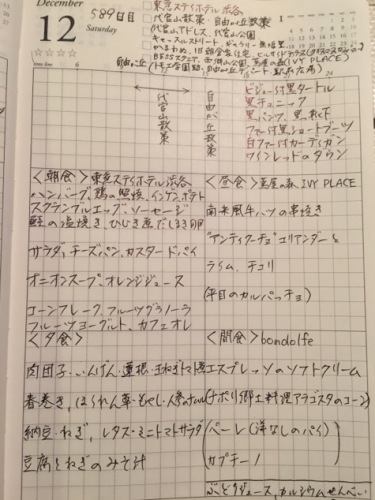 December
12
Saturday
589日目
東京ステイホテル渋谷
代官山散策、自由が丘散策
代官山アドレス、代官山公園
キャッスルストリート
旧朝倉家住宅、ヒルサイドテラス
西郷山公園、蔦屋の森(IVY PLACE)
自由が丘
代官山散策
自由が丘散策
ビジュー付黒タートル
黒チュニック
黒パンツ、黒くつ下
ファー付黒ショートブーツ
白ファー付カーディガン
ワインレッドのダウン
<朝食>東京ステイホテル渋谷
ハンバーグ、鶏の照焼、インゲン、ポテト
スクランブルエッグ、ソーセージ
鮭の塩焼き、ひじき煮、だしまき卵
サラダ、チーズパン、カスタードパイ
オニオンスープ、オレンジジュース
コーンフレーク、フルーツグラノーラ
フルーツヨーグルト、カフェオレ
<昼食>蔦屋の森、IVY PLACE
南米風牛ハツの串焼き
"アンティクーチョ"コリアンダーと
ライム、チコリ
(平目のカルパッチョ)
<夕食>
肉団子・いんげん・蓮根・玉ねぎトマト煮
春巻き、ほうれん草・もやし・人参のナムル
納豆・ねぎ、レタス・ミニトマトサラダ
豆腐とねぎのみそ汁
<間食>bondolfe
エスプレッソのソフトクリーム
(ナポリ郷土料理アラゴスタのコーン)
ペーレ(洋なしのパイ)
カプチーノ
ぶどうジュース、カルシウムせんべい